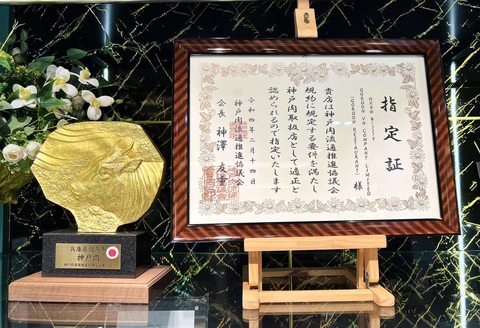 指定証
GORGON VN COMPANY LIMITED
(GORGON RESTAURANT) 様
貴店は神戸肉流通推進協議会
規約に規定する要件を満たし
神戸肉取扱店として適正と
認められるので指定いたします
令和四年 月十四日
神戸肉流通推進協議会
会長 神澤
神戸肉